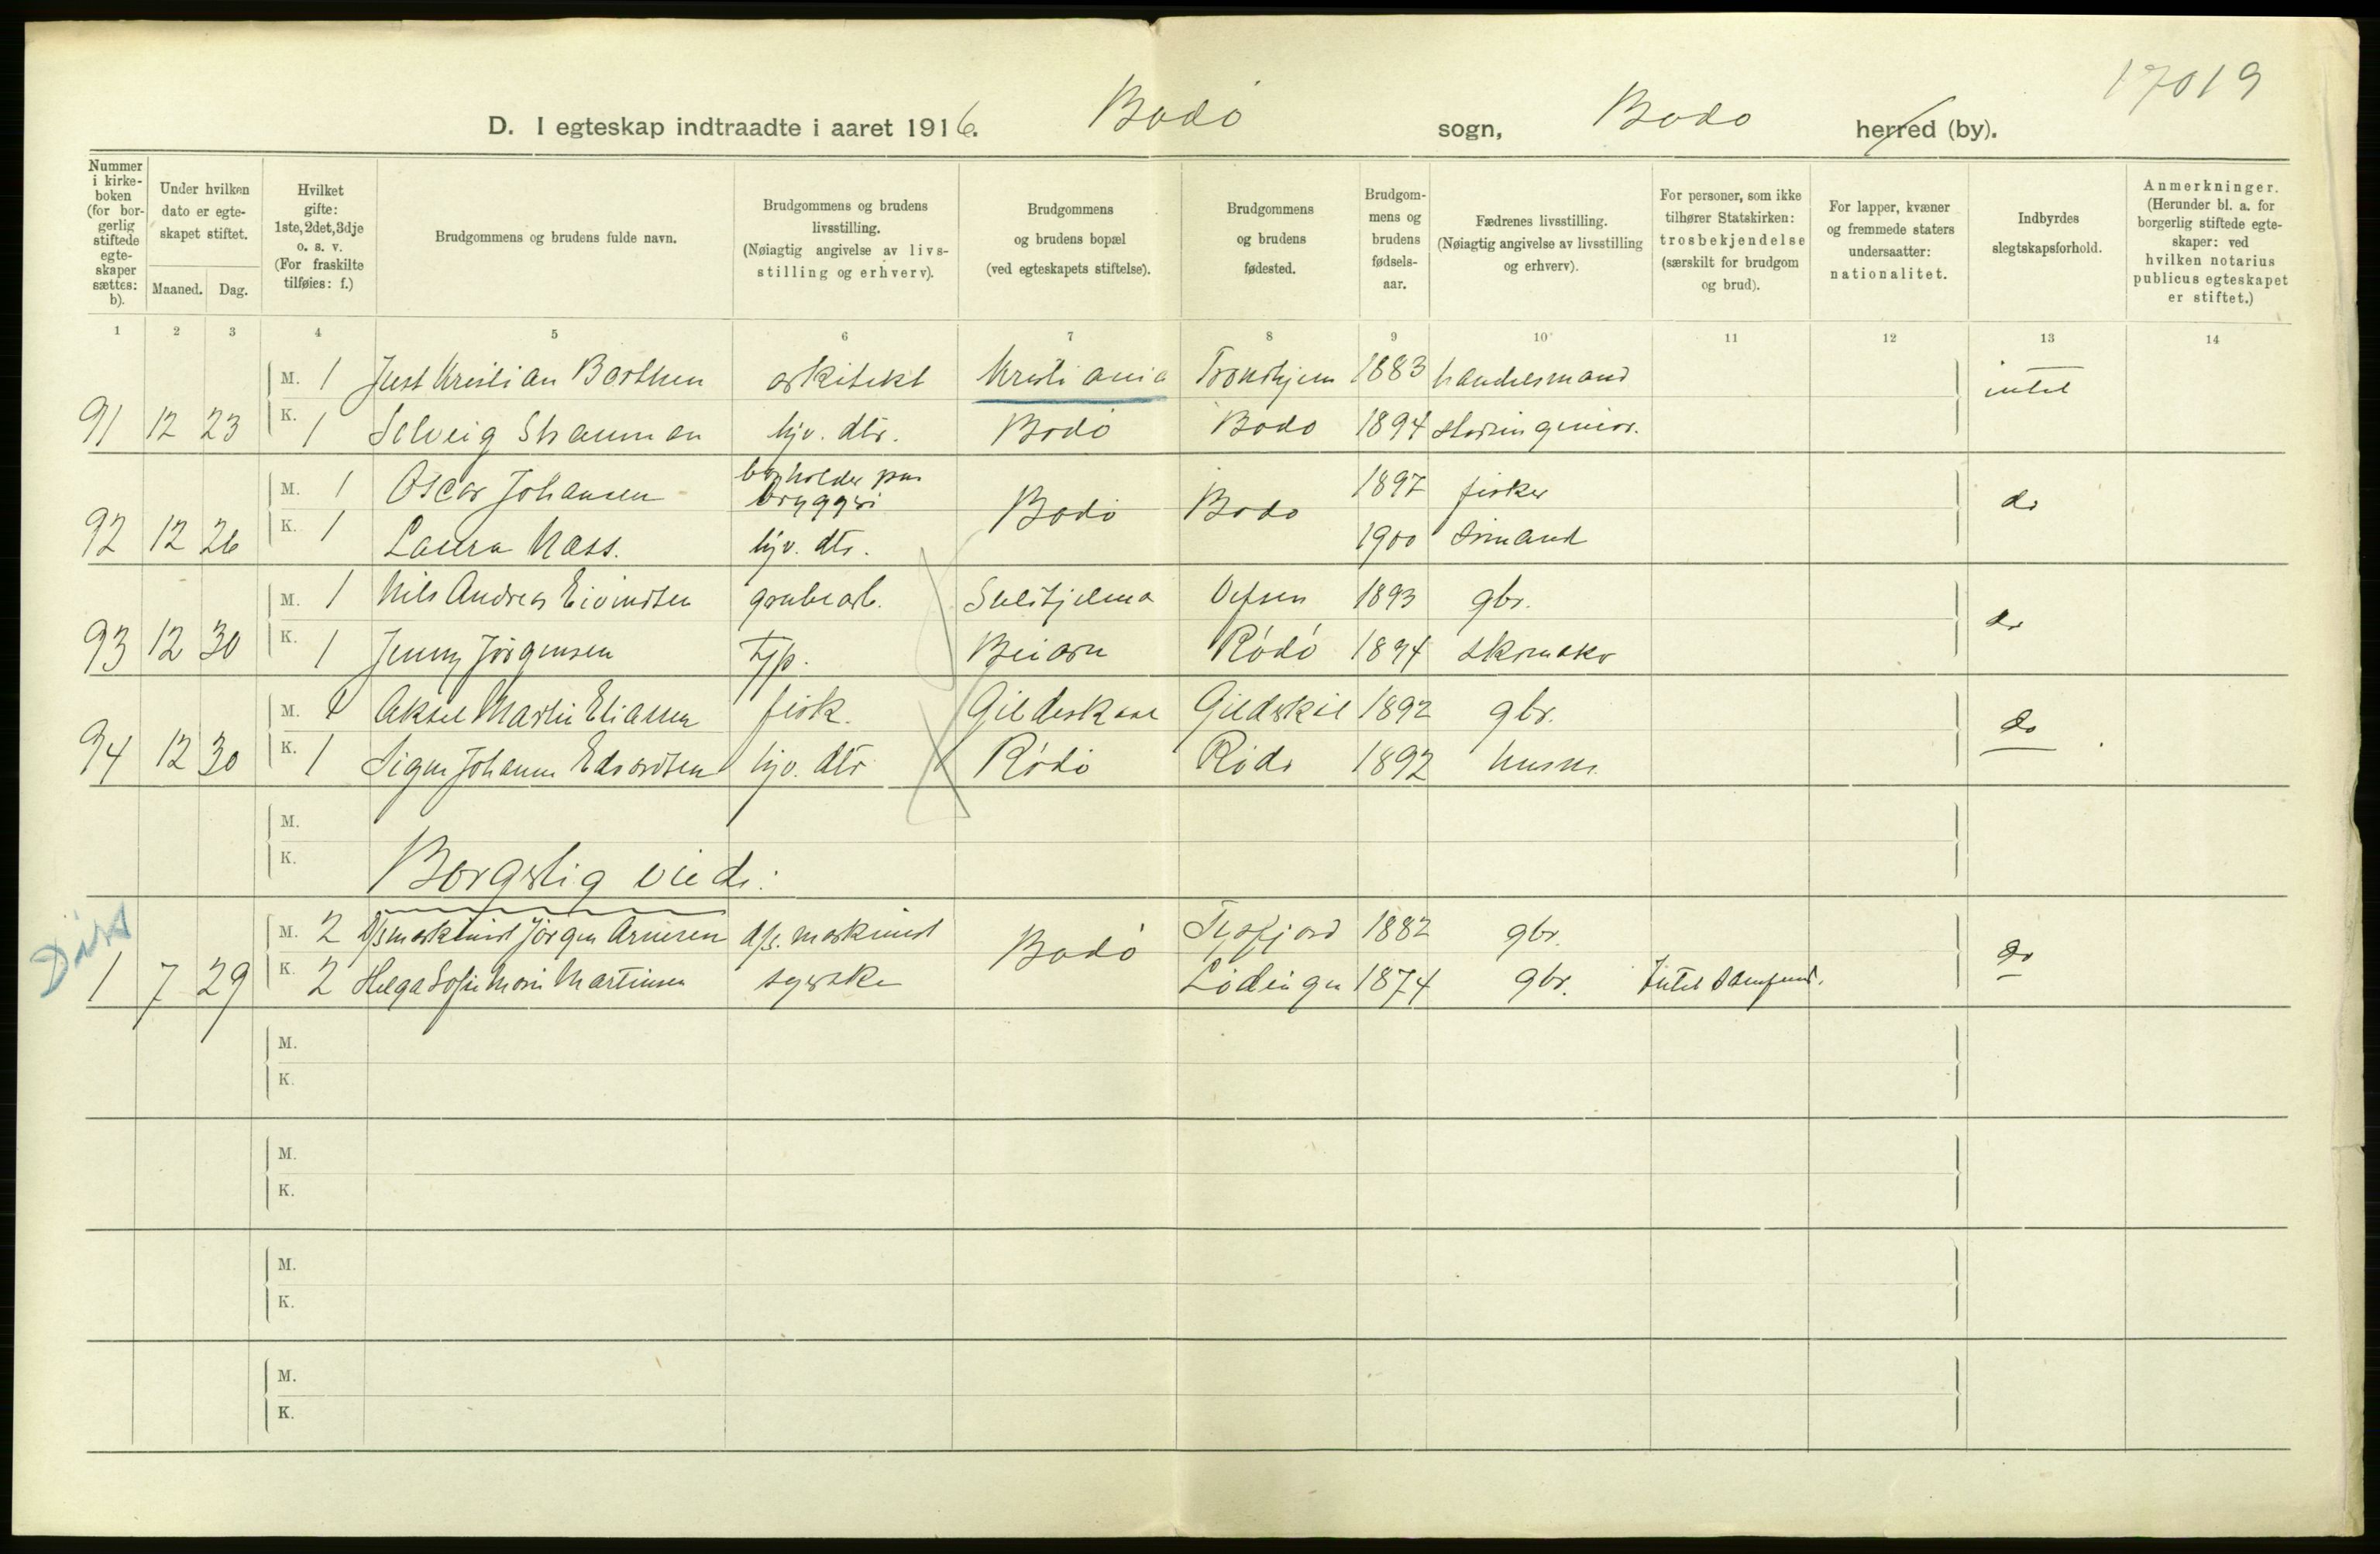 17019
D. I egteskap indtraadte i aaret 1916. Bodø sogn, Bodø herred (by).
Nummer i kirke-boken (for bor-gerlig stiftede egte-skaper sættes: b).
Under hvilken dato er egte-skapet stiftet.
Maaned. Dag.
Hvilket gifte: 1ste, 2det, 3dje o. s. v. (For fraskilte tilføies: f.)
Brudgommens og brudens fulde navn.
Brudgommens og brudens livsstilling. (Nøiagtig angivelse av livs-stilling og erhverv).
Brudgommens og brudens bopæl (ved egteskapets stiftelse).
Brudgommens og brudens fødested.
Brudgom-mens og brudens fødsels-aar.
Fædrenes livsstilling. (Nøiagtig angivelse av livsstilling og erhverv).
For personer, som ikke tilhører Statskirken: trosbekjendelse (særskilt for brudgom og brud).
For lapper, kvæner og fremmede staters undersaatter: nationalitet.
Indbyrdes slegtskapsforhold.
Anmerkninger. (Herunder bl. a. for borgerlig stiftede egte-skaper: ved hvilken notarius publicus egteskapet er stiftet.)
1 2 3 4 5 6 7 8 9 10 11 12 13 14
M. 1 Just Kristian Barthen arkitekt Kristiania Trondhjem 1883 handelsmand intet
91 12 23 K. 1 Solveig Shauman hjv. dtr. Bodø Bodø 1894
M. 1 Oscar Johansen bryggeri Bodø Bodø 1897 fisker do
92 12 26 K. 1 Laura Næss. hjv. dtr. 1900
M. 1 Nils Andreas Eivindsen grubearb. Sulitjelma Vefsen 1893 gbr. do
93 12 30 K. 1 Jenny Jørgensen Tjp. Beiarn Rødø 1894 skomaker
M. 1 Aksel Martin Eliassen fisk. Gildeskaal Gildeskål 1892 gbr. do
94 12 30 K. 1 Signe Johanne Edvardsen hjv. dtr Rødø Rødø 1892 husm.
M.
K. Borgerlig viede:
M. 2 D/s maskinist Jørgen Arnesen d/s. maskinist Bodø Tysfjord 1882 gbr. do
1 7 29 K. 2 Helga Sofie Marie Martinsen syerske Lødingen 1874 gbr. Intet samfund.
M.
K.
M.
K.
M.
K.
M.
K.